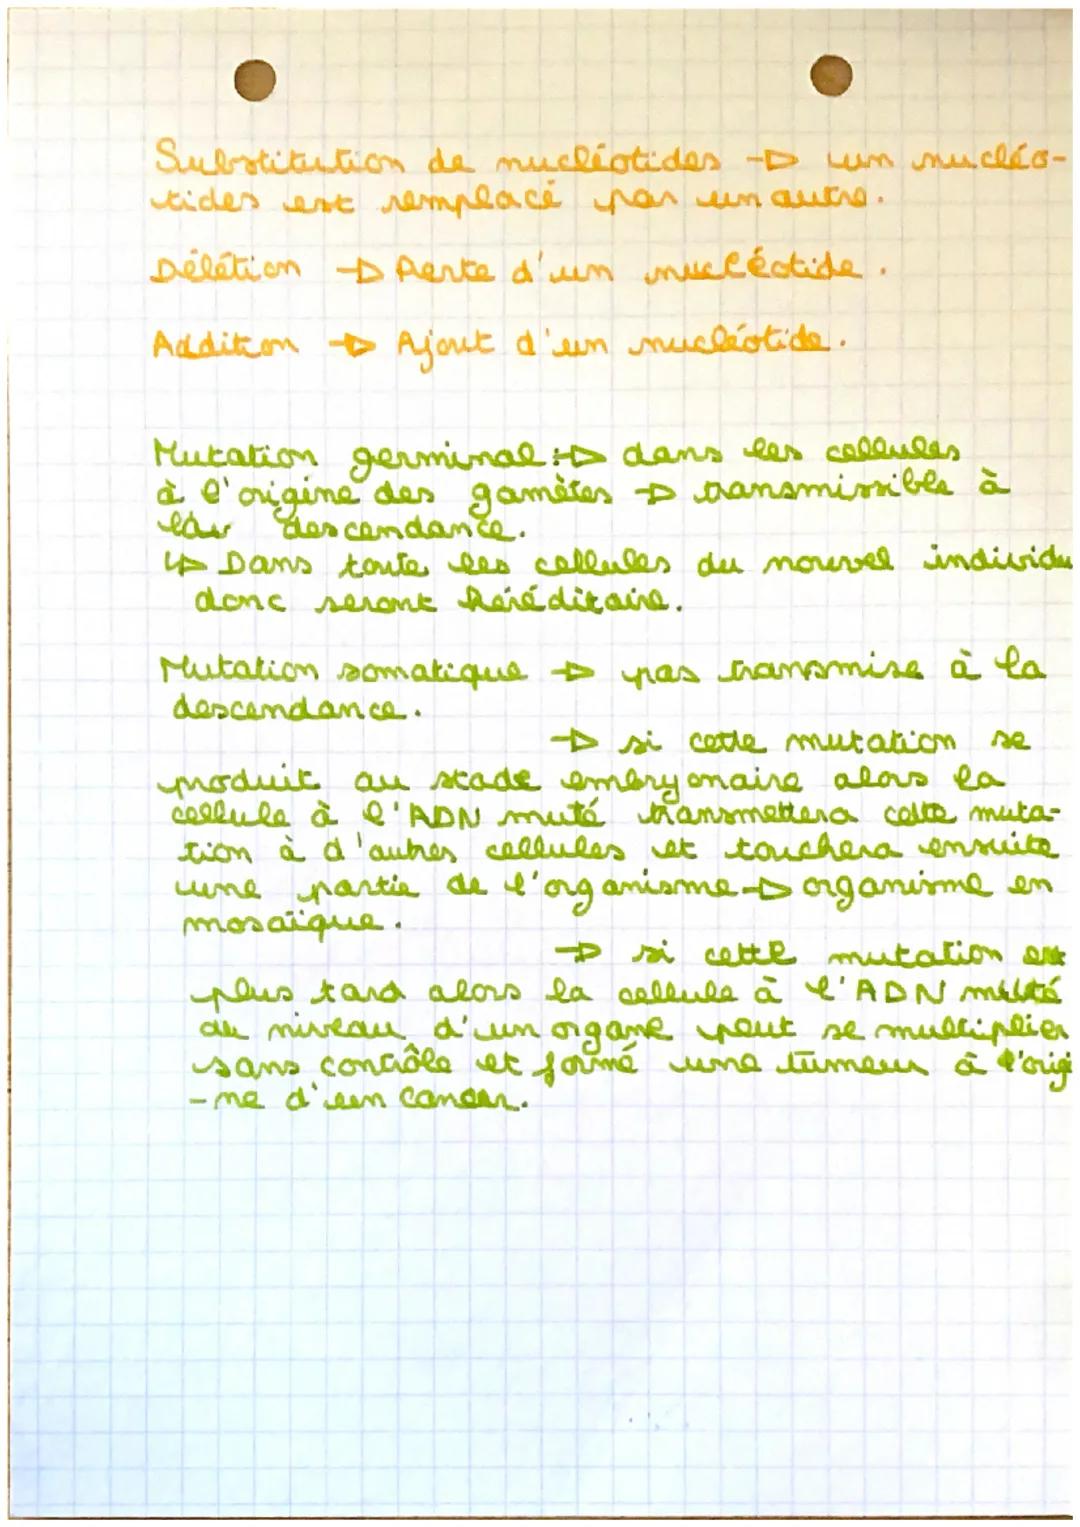 Substitution de nucléotides → un nucléo-
tides est remplacé par un autre.
Délétion → Perte d'un nucléotide.
Addition → Ajout d'un nucléotide.
Mutation germinal :→ dans les cellules
à l'origine des gamètes → transmissible à
la descendance.
↳ Dans toute les cellules du nouvel individu
donc seront héréditaire.
Mutation somatique → pas transmise à la
descendance.
→ si cette mutation se
produit au stade embryonaire alors la
cellule à l'ADN muté transmettera cette muta-
tion à d'autres cellules et touchera ensuite
une partie de l'organisme → organisme en
mosaïque.
→ si cette mutation est
plus tard alors la cellule à l'ADN muté
au niveau d'un organe peut se multiplier
sans contrôle et formé une tumeur à l'origi
-ne d'un cancer.